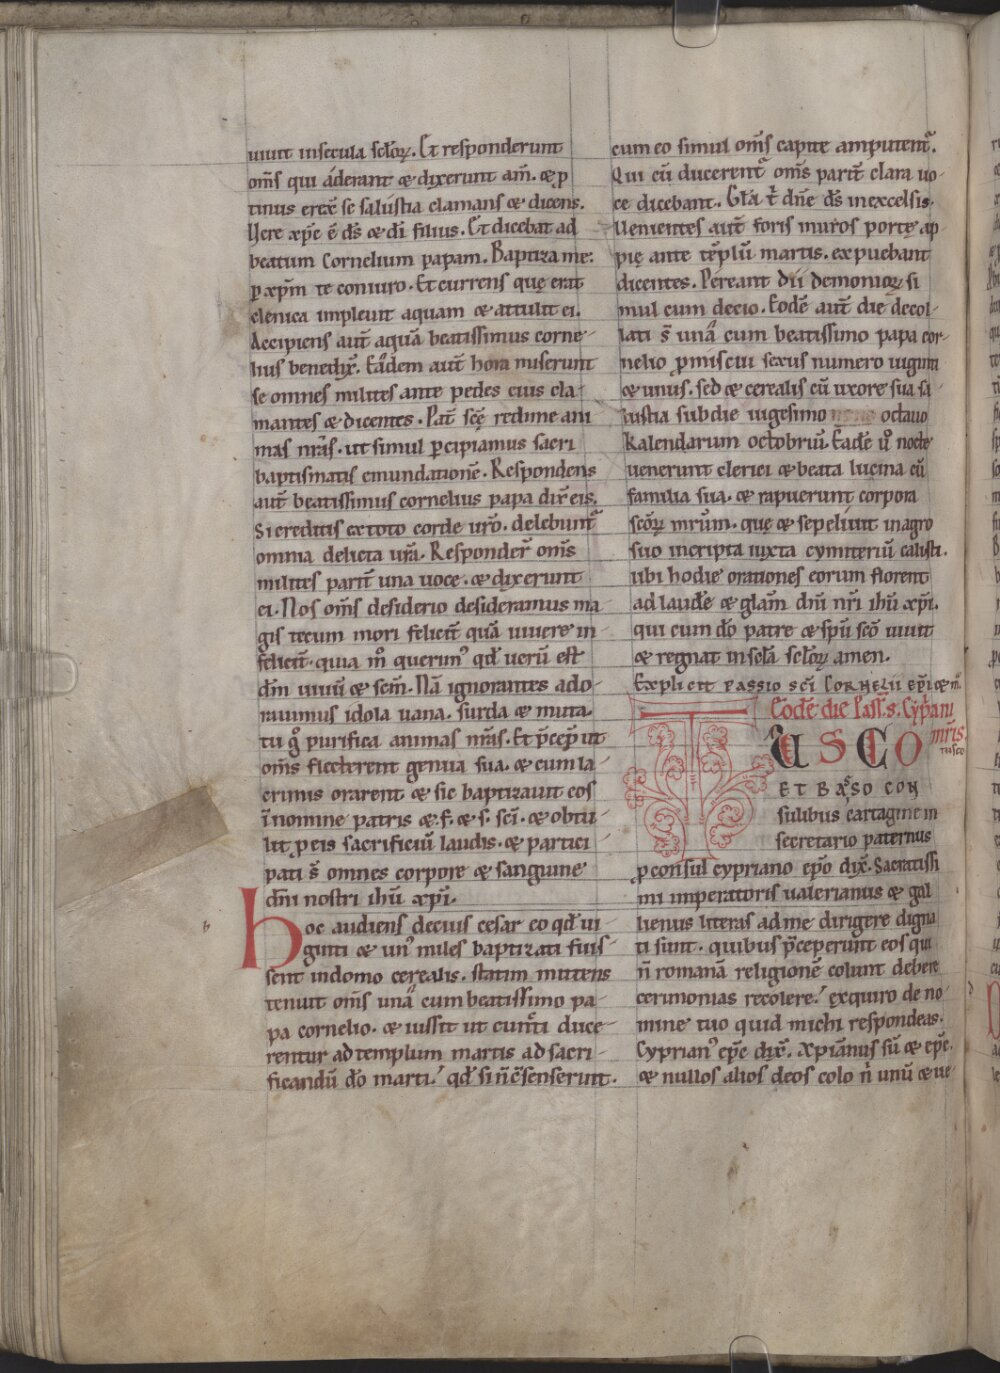 uiuit insecula scl̄oꝝ. Et responderunt
om̄s qui áderant & dixerunt am̄. & ꝓ
tinus erex̄ se salustia clamans & dicens.
Uere xp̄c ē d̄s & dī filius. Et dicebat ad
beatum Cornelium papam. Baptiza me:
ꝑ xp̄m te coniuro. Et currens quę erat
clenica impleuit aquam & attulit ei.
Accipiens aut̄ aquā beatissimus corne-
lius benedix̄. Eādem aut̄ hora miserunt
se omnes milites ante pedes eius cla-
mantes & dicentes. Pat̄ scē redime ani
mas nr̄as. ut simul ꝑcipiamus sacri
baptismatis emundationē. Respondens
aut̄ beatissimus cornelius papa dix̄ eis.
Si creditis ex toto corde ur̄o. delebunt᷑
omnia delicta ur̄a. Responder̄ om̄s
milites parit̄ una uoce. & dixerunt
ei. Nos om̄s desiderio desideramus ma
gis tecum mori felicit̄ quā uiuere in-
felicit̄. quia m̊ querimꝰ qd̄ uerū est
dm̄ uiuū & sem̄. Nā ignorantes ado-
rauimus idola uana. surda & muta.
tu g̊ purifica animas nr̄as. Et p̄cep̄ ut
om̄s flecterent genua sua. & cum la-
crimis orarent & sic baptizauit eos
ī nomine patris & .f. & .s. sc̄i. & obtu-
lit ꝓ eis sacrificiū laudis. & partici
pati s̄ omnes corpore & sanguine
dn̄i nostri ih̄u xp̄i.
hoc audiens decius cesar eo qd̄ ui-
ginti & unꝰ miles baptizati fuis-
sent in domo cerealis. statim mittens
tenuit om̄s unā cum beatissimo pa-
pa cornelio. & iussit ut cuncti duce-
rentur ad templum martis ad sacri-
ficandū dō marti. qd̄ si n̄ c̄senserunt.
cum eo simul om̄s capite amputent᷑.
Qui cū ducerent᷑ om̄s parit̄ clara uo-
ce dicebant. Glā t̄ dn̄e d̄s inexcelsis.
Uenientes aut̄ foris muros portę ap-
pię ante tēplū martis. expuebant
dicentes. Pereant dii demonioꝝ si
mul cum decio. Eodē aut̄ die decol-
lati s̄ unā cum beatissimo papa cor-
nelio ꝓmiscui sexus numero uiginti
& unus. sed & cerealis cū uxore sua sa-
lustia sub die uigesimo octauo
kalendarum octobriū. Eadē ů nocte
uenerunt clerici & beata lucina cū
familia sua. & rapuerunt corpora
sc̄oꝝ mr̄um. que & sepeliuit in agro
suo incripta iuxta cymiteriū calisti.
ubi hodie orationes eorum florent
ad laudē & glam̄ dn̄i nr̄i ih̄u xp̄i.
qui cum dō patre & sp̄u scō uiuit
& regnat in scl̄a scl̄oꝝ amen.
Explicit passio sc̄i Cornelii ep̄i & m̄.
Eode die Pass̄. s. Cyp̄ani
mr̄is.
TUSCO
tusco
ET BASSO CON
sulibus cartagine in
secretario paternus
ꝓconsul cypriano ep̄o dix̄. Sacratissi
mi imperatoris ualerianus & gal
lienus literas ad me dirigere digna
ti sunt. quibus p̄ceperunt eos qui
n̄ romanā religionē colunt debere
cerimonias recolere. exquiro de no-
mine tuo quid michi respondeas.
Cyprianꝰ ep̄c dix̄. Xp̄ianus sū & ep̄c.
& nullos alios deos colo n̄ unū & ue-